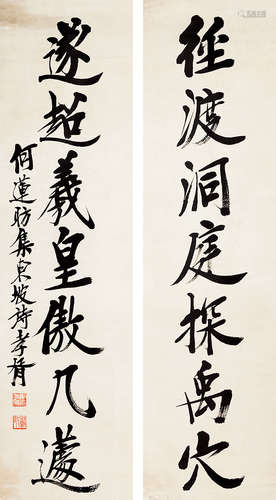 径渡洞庭探禹穴
遂超羲皇傲几蘧
何蓮昉集東坡詩孝胥